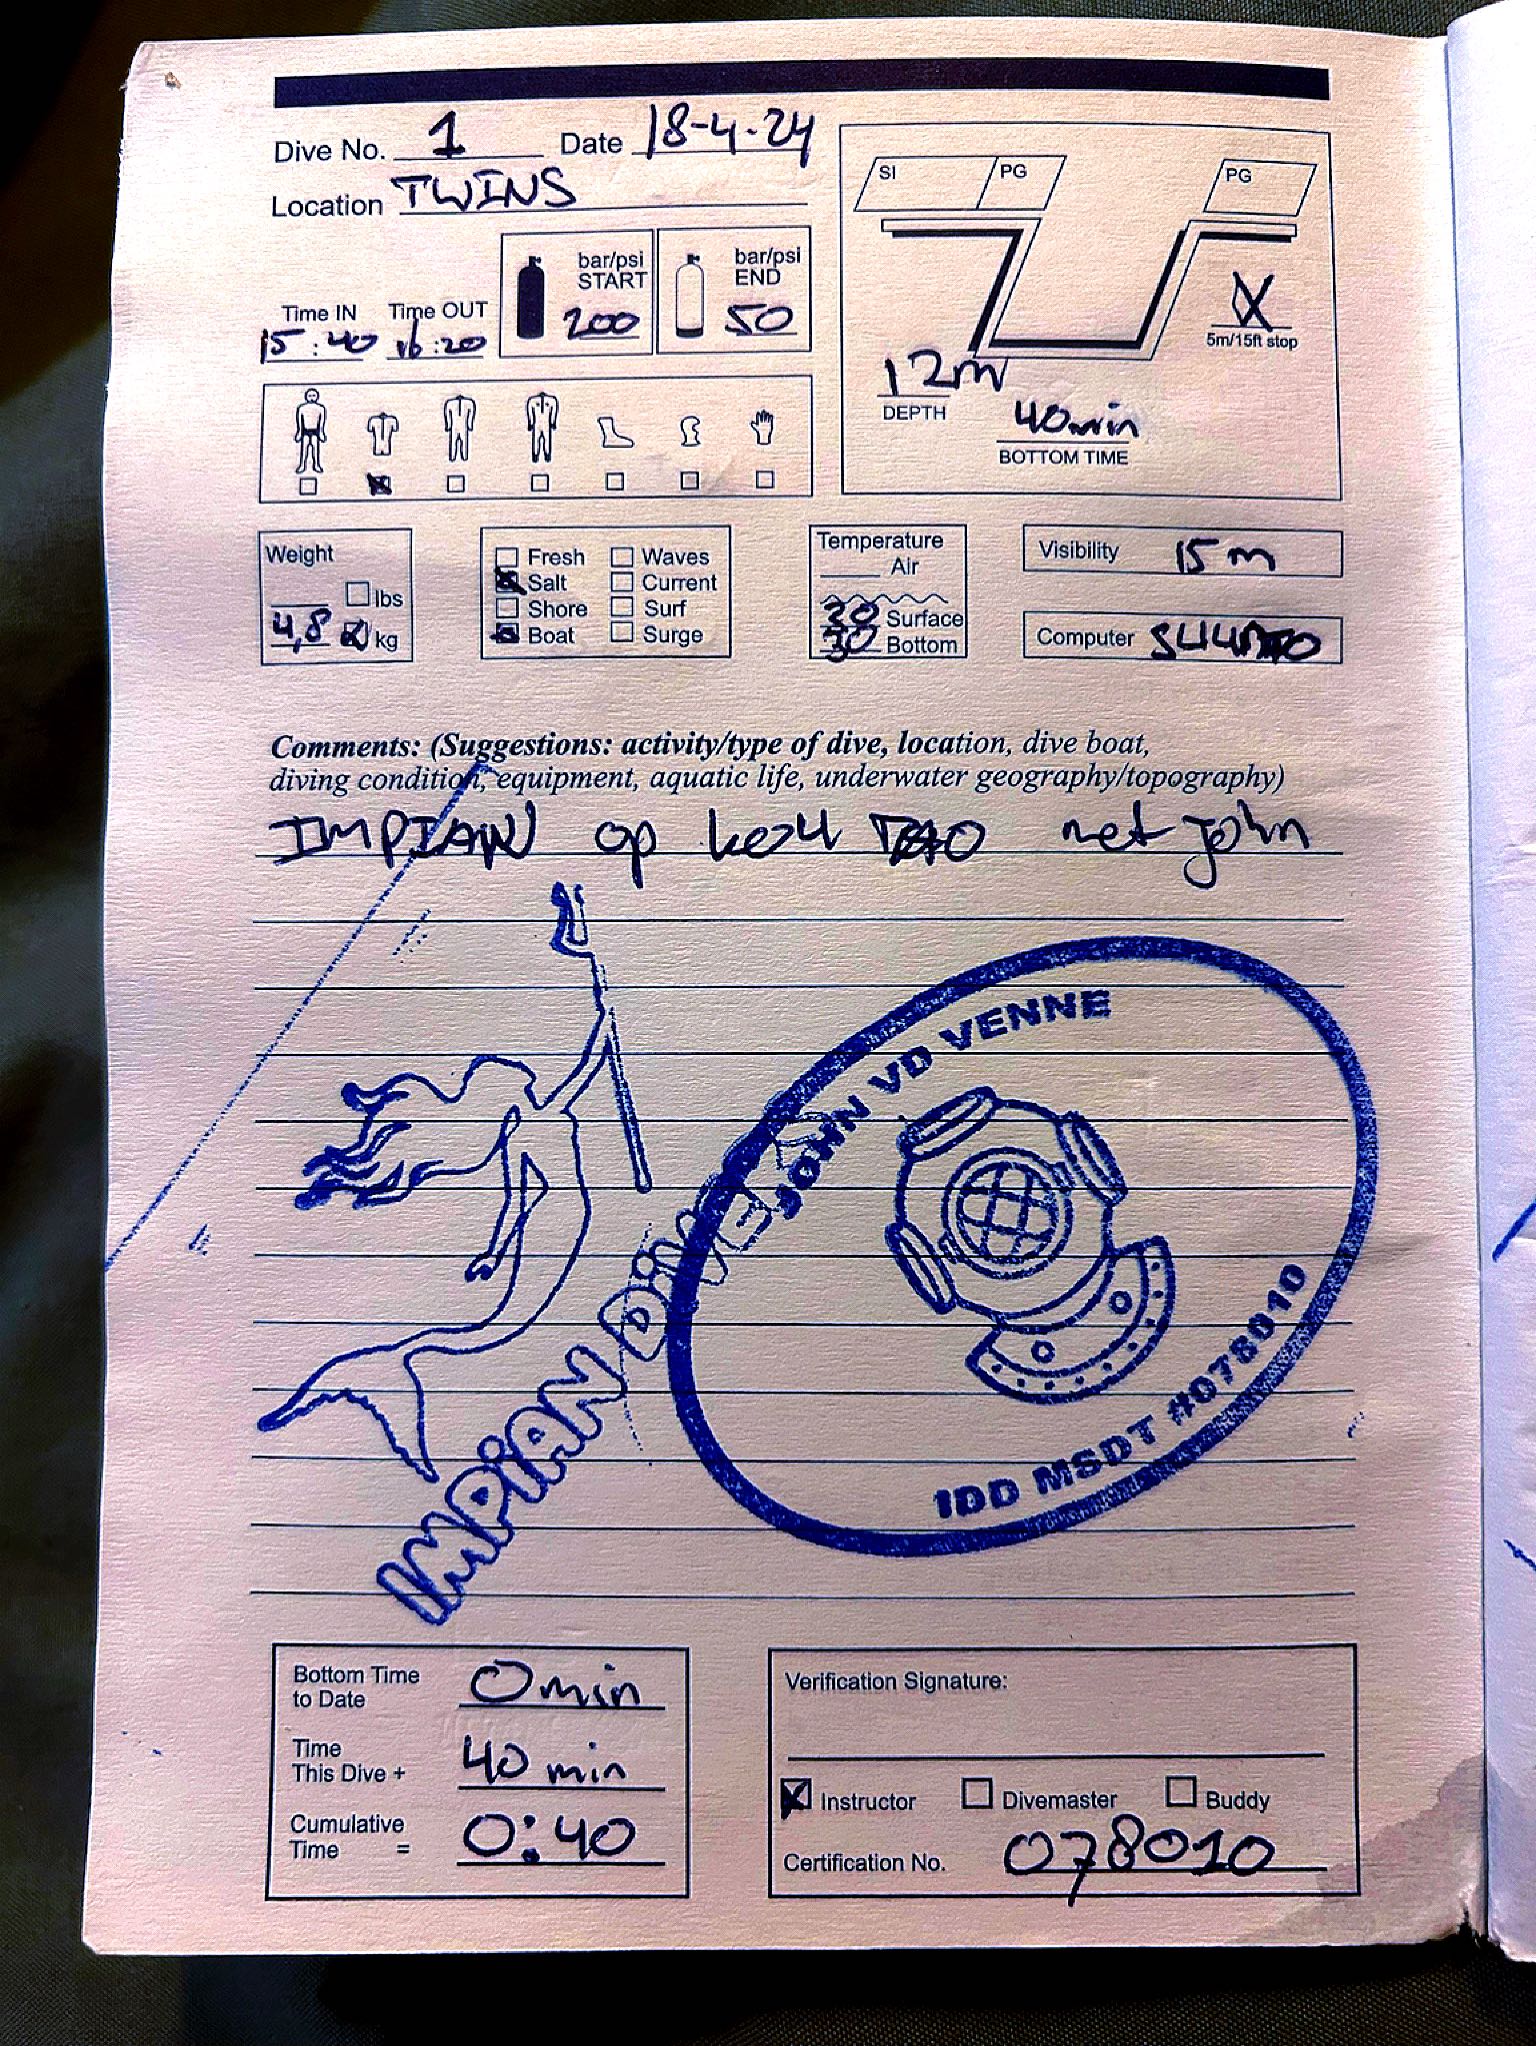 Dive No. 1 Date 18-4-24
Location TWINS
SI PG PG
bar/psi START 200
bar/psi END 50
Time IN 15:40 Time OUT 16:20
X 5m/15ft stop
12m DEPTH
40min BOTTOM TIME
Weight
lbs
4,8 kg
Fresh Waves
Salt Current
Shore Surf
Boat Surge
Temperature
Air
30 Surface
30 Bottom
Visibility 15m
Computer
Comments: (Suggestions: activity/type of dive, location, dive boat,
diving condition, equipment, aquatic life, underwater geography/topography)
IMPIAN op TAO met John
IMPiAN DiVE
JOHN VD VENNE
IDD MSDT #078010
Bottom Time to Date 0min
Time This Dive + 40 min
Cumulative Time = 0:40
Verification Signature:
Instructor Divemaster Buddy
Certification No. 078010